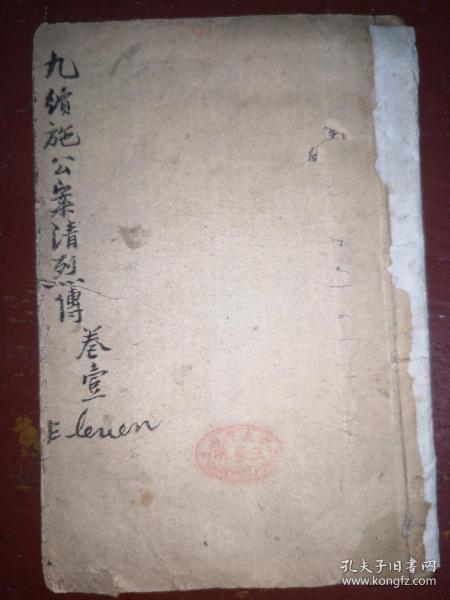 九續施公案清烈傳
卷壹
Eleven
孔夫子旧书网
www.kongfz.com